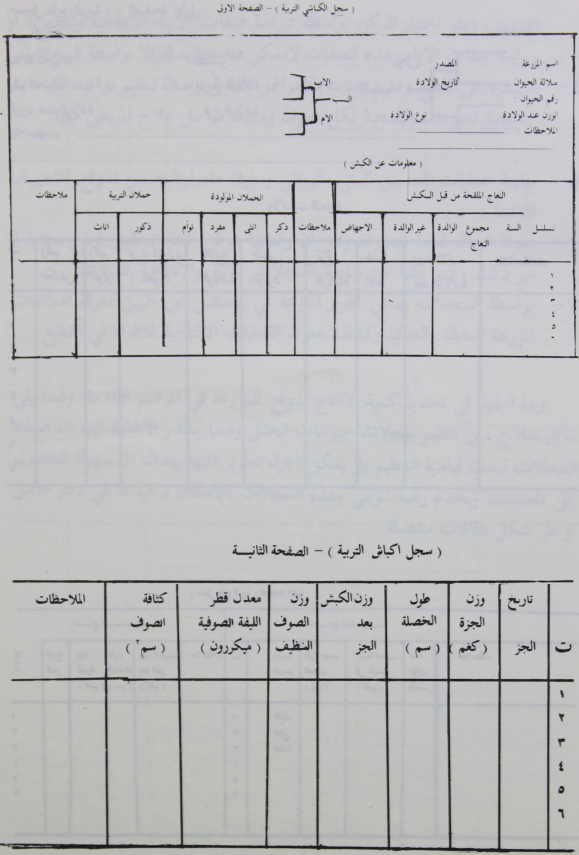 ( سجل الكباشي التربية ) – الصفحة الاولى
اسم المزرعة المصدر
سلالة الحيوان تاريخ الولادة الاب
رقم الحيوان : النسب
الوزن عند الولادة نوع الولادة الام
الملاحظات :
( معلومات عن الكبش )
النعاج الملقحة من قبل الكبش الحملان المولودة حملان التربية ملاحظات
تسلسل السنة مجموع النعاج الوالدة غير الوالدة الاجهاض ملاحظات ذكر انثى مفرد توأم ذكور اناث
١
٢
٣
٤
٥
( سجل اكباش التربية ) – الصفحة الثانيـــة
ت تاريخ الجز وزن الجزة ( كغم ) طول الخصلة ( سم ) وزن الكبش بعد الجز وزن الصوف النظيف معدل قطر الليفة الصوفية ( ميكررون ) كثافة الصوف ( سم٢ ) الملاحظات
١
٢
٣
٤
٥
٦